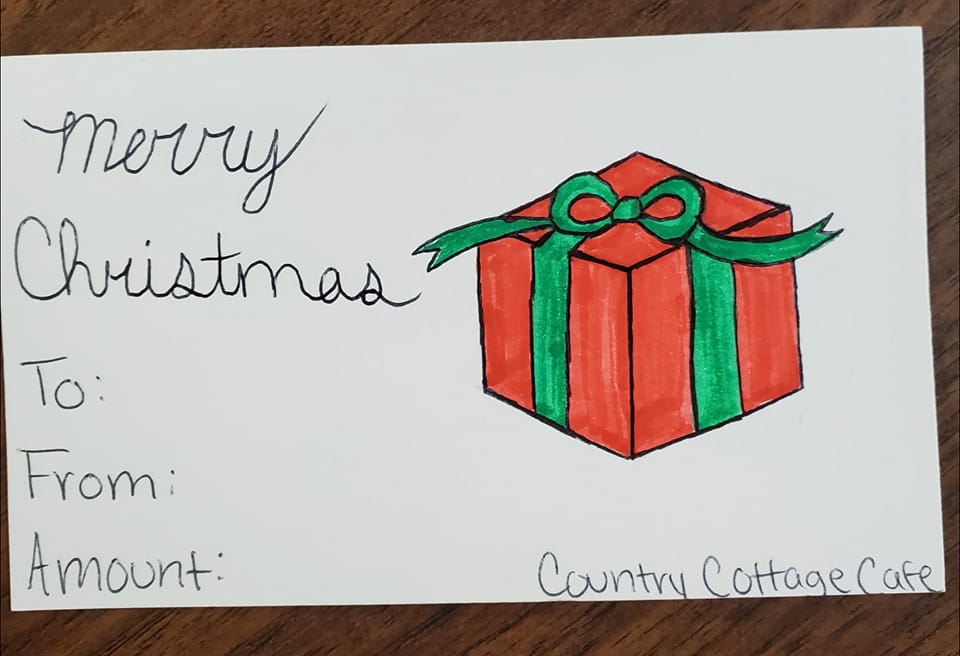 Merry
Christmas
To:
From:
Amount:
Country Cottage Cafe